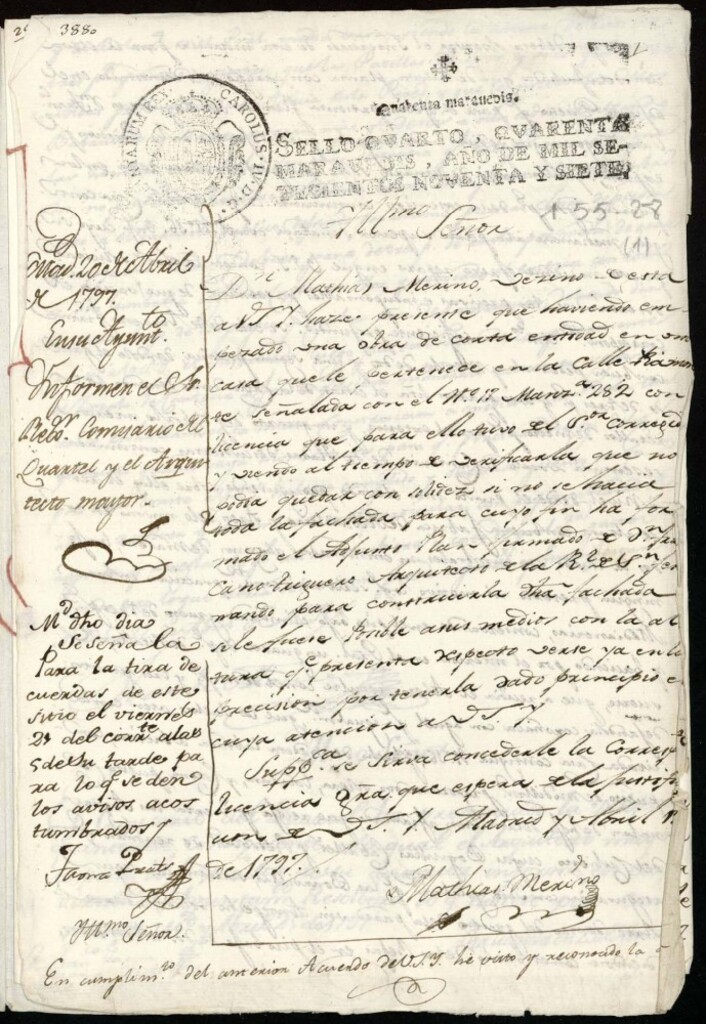 2ⁱ 3880
Quarenta marauedis.
CAROLUS·IV·D·G·
HISPANIARUM REX
SELLO QVARTO, QVARENTA
MARAVEDIS, AÑO DE MIL SE-
TECIENTOS NOVENTA Y SIETE.
155-28
(1)
Yllmo
Señor
Dn. Mathias Merino, vezino de esta
a V.S.Y. haze presente que haviendo em
pezado una obra de corta entidad en una
casa que le pertenece en la Calle
señalada con el No. 17 Manza. 282 con
licencia que para ello tuvo del Sor. Corregid
y viendo al tiempo de verificarla que no
podia quedar con solidez si no se hacia
toda la fachada para cuyo fin ha for
mado el Adjunto Plan firmado de Dn.
cano triguero Arquitecto de la Rl. de Sn. Fer
nando para construirla dha. fachada
si le fuere posible a sus medios con la al
tura qe. presenta respecto verse ya en la
precision por tenerla dado principio e
cuya atencion a V.S.Y.
Suppca. se sirva concederle la Corresp
licencia Gra. que espera de la justifi
cion de V.S.Y. Madrid y Abril
de 1797.
Mathias Merino
Mad. 20 de Abril
de 1797.
En su Ayuntto.
Ynformen el Sr.
Regor. Comisario del
Quartel y el Arqui
tecto mayor.
Md. dho dia
Se señala
Para la tira de
cuerdas de este
sitio el viernes
21 del corrte. a las
5 de su tarde pa
ra lo q. se den
los avisos acos
tumbrados
Yllmo. Señor.
En cumplimto. del anterior Acuerdo de V.S.Y. he visto y reconocido la